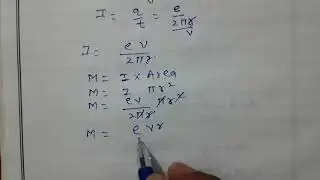 I = q/t = e/(2πr/v)
I = ev/2πr
M = I × Area
M = I πr²
M = ev/2πr πr²
M = evr